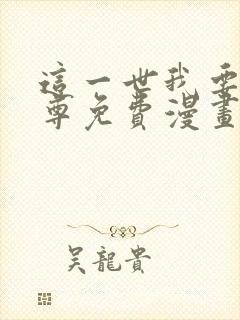 這一世我要
尊免費漫畫
吳龍貴